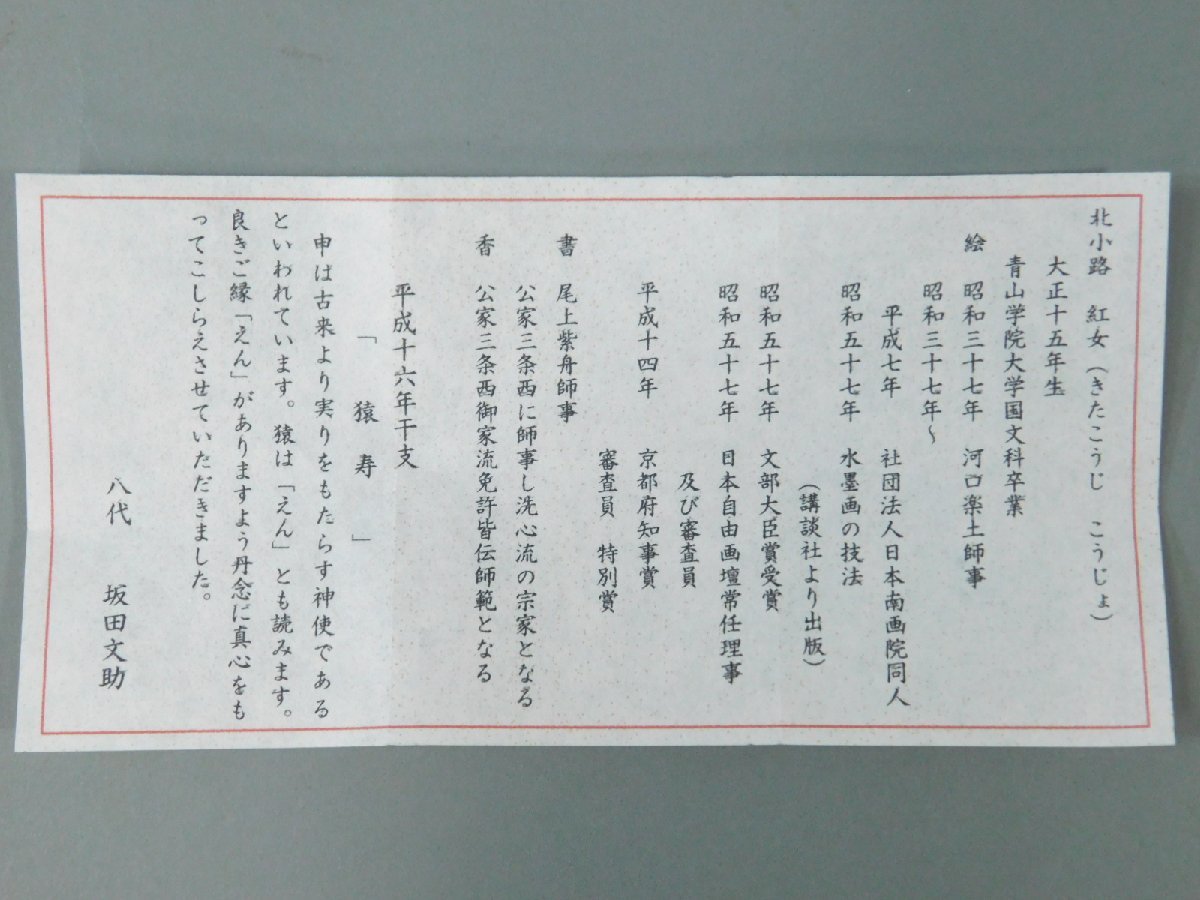 北小路　紅女（きたこうじ　こうじょ）
大正十五年生
青山学院大学国文科卒業
絵　昭和三十七年　河口楽土師事
昭和三十七年～
平成七年　社団法人日本南画院同人
昭和五十七年　水墨画の技法
（講談社より出版）
昭和五十七年　文部大臣賞受賞
昭和五十七年　日本自由画壇常任理事
及び審査員
平成十四年　京都府知事賞
審査員　特別賞
書　尾上紫舟師事
公家三条西に師事し洗心流の宗家となる
香　公家三条西御家流免許皆伝師範となる
平成十六年干支
「　猿　寿　」
申は古来より実りをもたらす神使である
といわれています。猿は「えん」とも読みます。
良きご縁「えん」がありますよう丹念に真心をも
ってこしらえさせていただきました。
八代　坂田文助